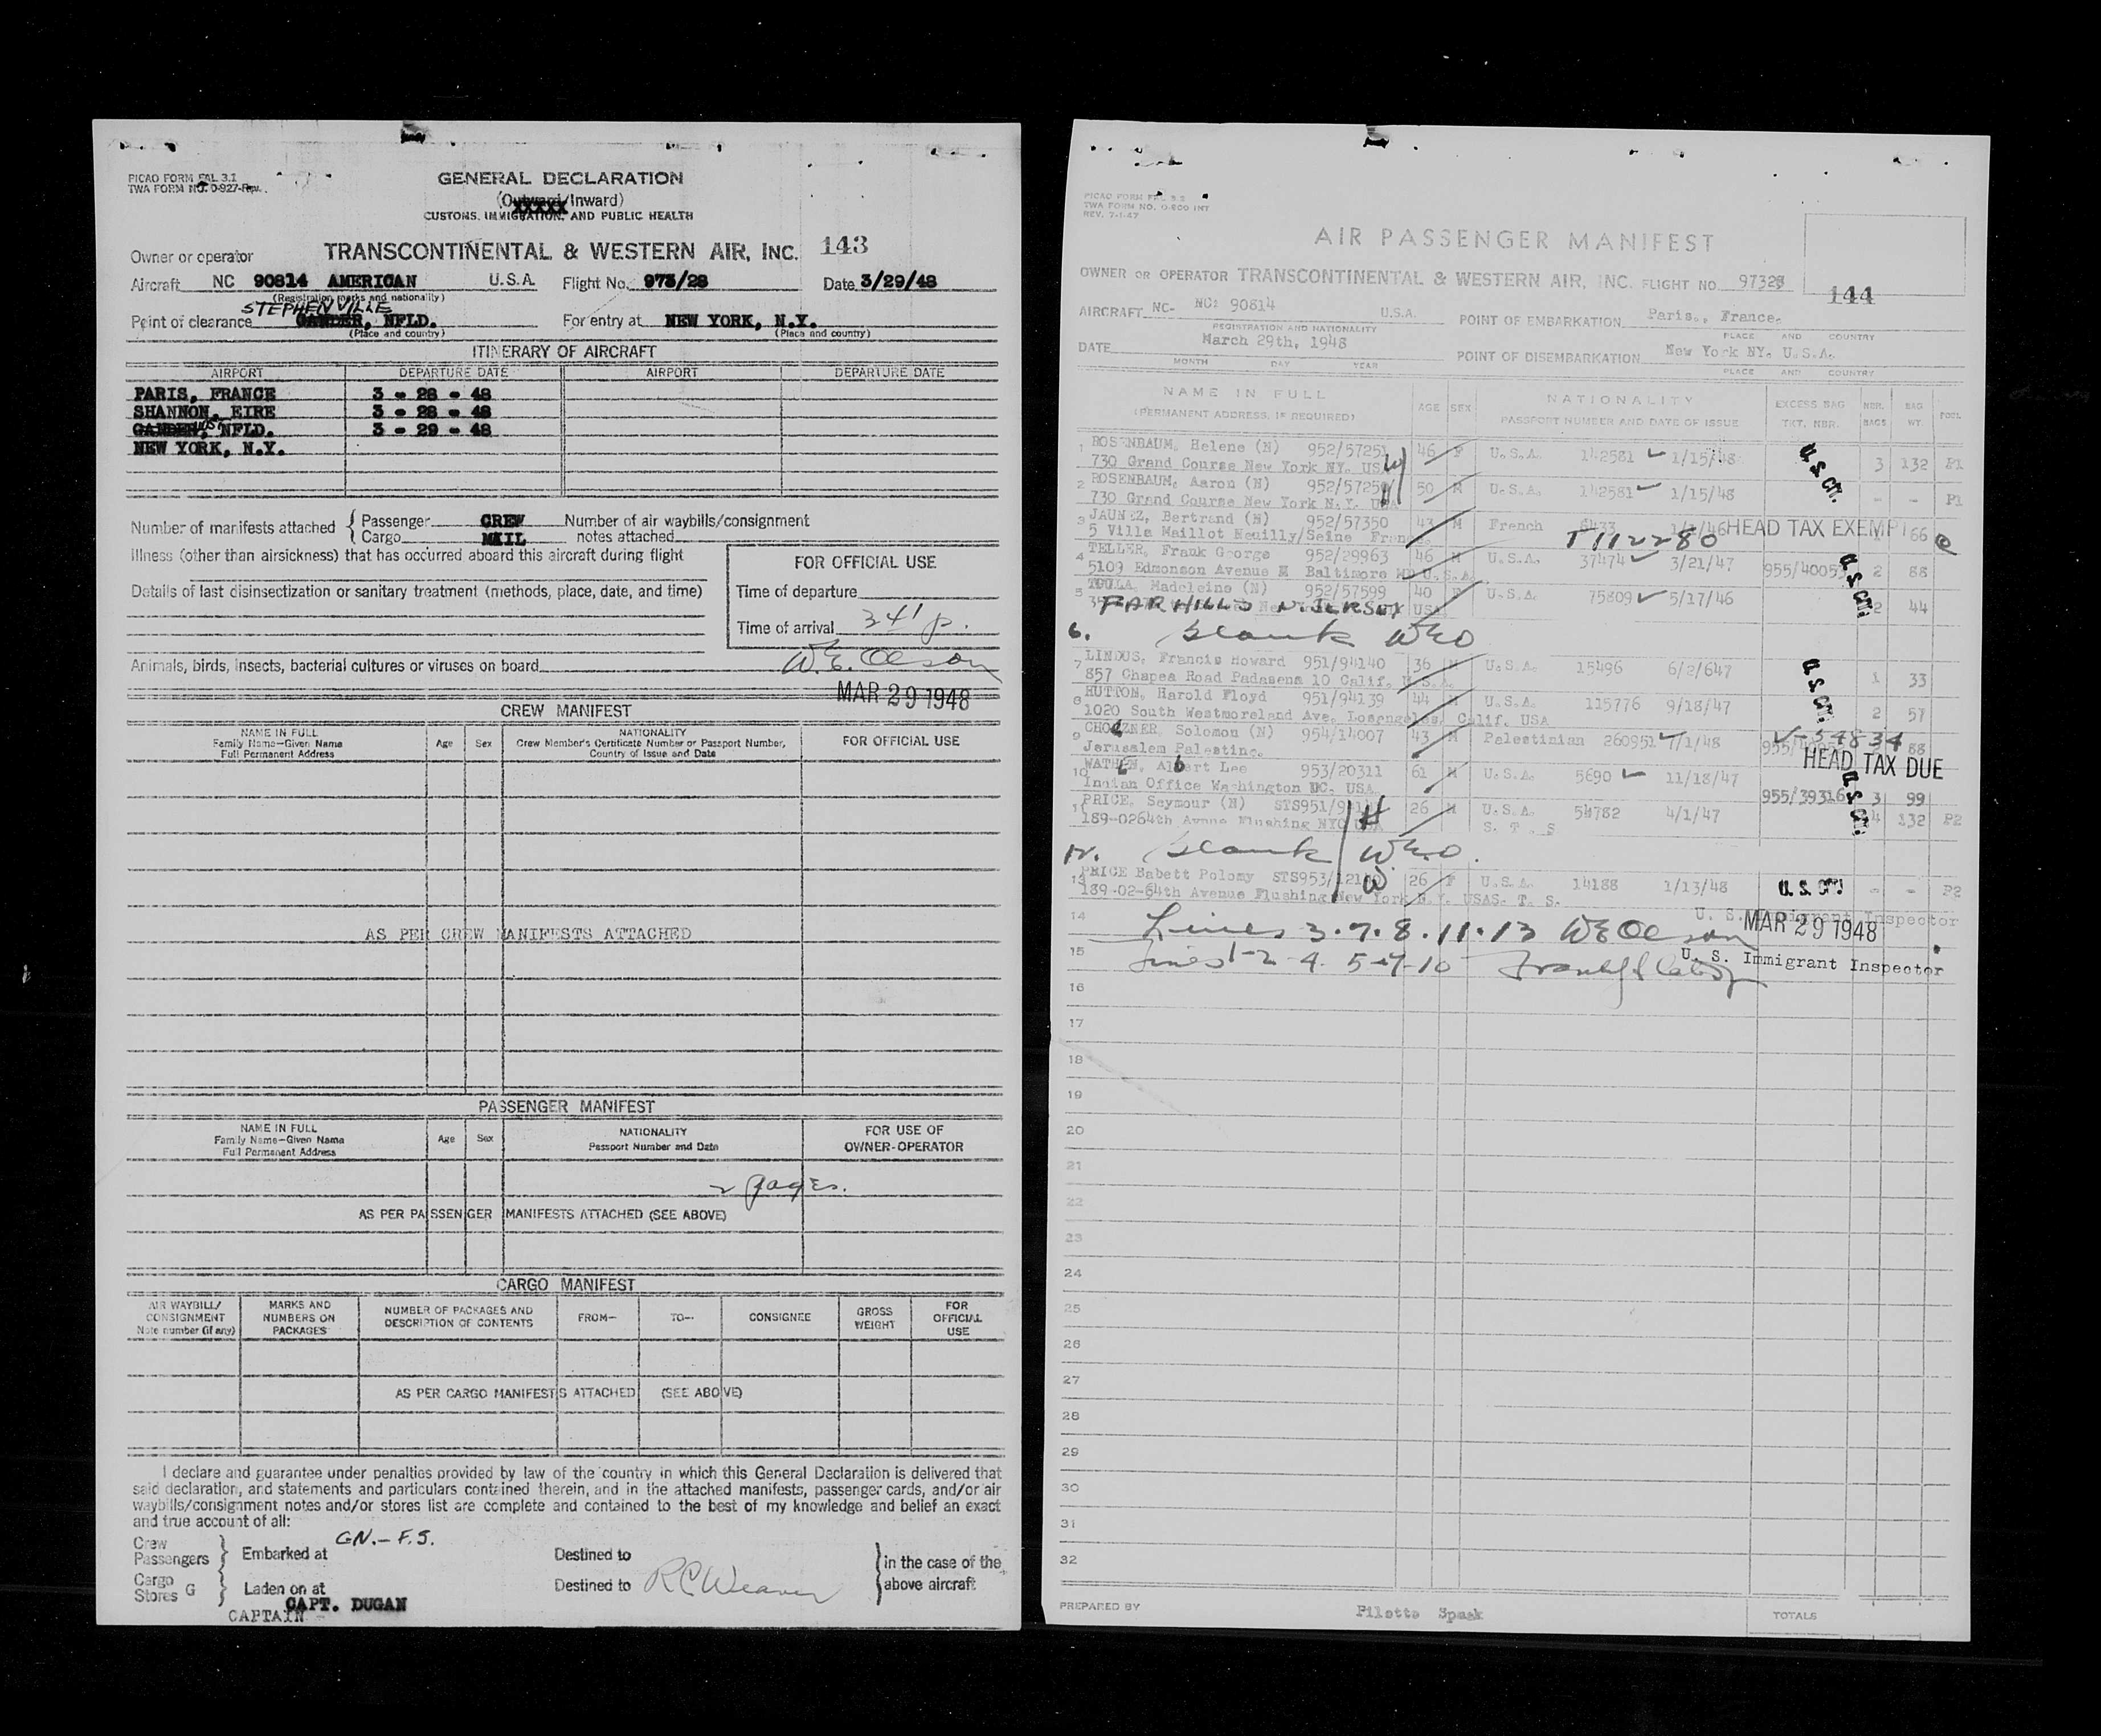 PICAO FORM FAL 3.1
TWA FORM NO. 0-927-Rev.
GENERAL DECLARATION
(Outward/Inward)
CUSTOMS, IMMIGRATION, AND PUBLIC HEALTH
Owner or operator TRANSCONTINENTAL & WESTERN AIR, INC. 143
Aircraft NC 90814 AMERICAN U.S.A. Flight No. 973/28 Date 3/29/48
(Registration marks and nationality)
STEPHENVILLE
Point of clearance GANDER, NFLD. For entry at NEW YORK, N.Y.
(Place and country) (Place and country)
ITINERARY OF AIRCRAFT
AIRPORT DEPARTURE DATE AIRPORT DEPARTURE DATE
PARIS, FRANCE 3 - 28 - 48
SHANNON, EIRE 3 - 28 - 48
GANDER, NFLD. 3 - 29 - 48
NEW YORK, N.Y.
Number of manifests attached { Passenger CREW Number of air waybills/consignment
Cargo MAIL notes attached
Illness (other than airsickness) that has occurred aboard this aircraft during flight
FOR OFFICIAL USE
Details of last disinsectization or sanitary treatment (methods, place, date, and time)
Time of departure
Time of arrival 341 p.
Animals, birds, insects, bacterial cultures or viruses on board
W.E. Olson
MAR 29 1948
CREW MANIFEST
NAME IN FULL
Family Name—Given Name
Full Permanent Address
Age Sex
NATIONALITY
Crew Member's Certificate Number or Passport Number,
Country of Issue and Date
FOR OFFICIAL USE
AS PER CREW MANIFESTS ATTACHED
PASSENGER MANIFEST
NAME IN FULL
Family Name—Given Name
Full Permanent Address
Age Sex
NATIONALITY
Passport Number and Date
FOR USE OF
OWNER-OPERATOR
2 pages.
AS PER PASSENGER MANIFESTS ATTACHED (SEE ABOVE)
CARGO MANIFEST
AIR WAYBILL/
CONSIGNMENT
Note number (if any)
MARKS AND
NUMBERS ON
PACKAGES
NUMBER OF PACKAGES AND
DESCRIPTION OF CONTENTS
FROM— TO— CONSIGNEE
GROSS
WEIGHT
FOR
OFFICIAL
USE
AS PER CARGO MANIFESTS ATTACHED (SEE ABOVE)
I declare and guarantee under penalties provided by law of the country in which this General Declaration is delivered that
said declaration, and statements and particulars contained therein, and in the attached manifests, passenger cards, and/or air
waybills/consignment notes and/or stores list are complete and contained to the best of my knowledge and belief an exact
and true account of all:
Crew
Passengers } Embarked at GN.—F.S. Destined to
Cargo
Stores G } Laden on at Destined to RC Weaver
} in the case of the
above aircraft
CAPT. DUGAN
CAPTAIN
PICAO FORM FAL 3.2
TWA FORM NO. 0-800 INT
REV. 7-1-47
AIR PASSENGER MANIFEST
OWNER OR OPERATOR TRANSCONTINENTAL & WESTERN AIR, INC. FLIGHT NO. 97328
144
AIRCRAFT NC- NC: 90814 U.S.A. POINT OF EMBARKATION Paris., France.
REGISTRATION AND NATIONALITY PLACE AND COUNTRY
DATE March 29th, 1948 POINT OF DISEMBARKATION New York NY. U.S.A.
MONTH DAY YEAR PLACE AND COUNTRY
NAME IN FULL
(PERMANENT ADDRESS, IF REQUIRED)
AGE SEX
NATIONALITY
PASSPORT NUMBER AND DATE OF ISSUE
EXCESS BAG
TKT. NBR.
NBR.
BAGS
BAG
WT
POOL
1 ROSENBAUM, Helene (N) 952/57251 46 F U.S.A. 142581 1/15/48 3 132 P1
730 Grand Course New York NY. USA
2 ROSENBAUM, Aaron (N) 952/57250 50 M U.S.A. 142581 1/15/48 - - P1
730 Grand Course New York N.Y. USA
U.S. CIT.
3 JAUNEZ, Bertrand (N) 952/57350 43 M French HEAD TAX EXEMPT 66
5 Villa Maillot Neuilly/Seine France T112280
4 TELLER, Frank George 952/29963 46 M U.S.A. 37474 3/21/47 2 88
5109 Edmonson Avenue M Baltimore MD U.S.A. 955/40053
5 Madeleine (N) 952/57599 40 F U.S.A. 75809 5/17/46 2 44
FAR HILLS N. JERSEY USA
U.S. CIT.
6. Blank WEO
7 LINDUS, Francis Howard 951/94140 36 M U.S.A. 15496 6/2/647 1 33
857 Chapea Road Padasena 10 Calif. U.S.A.
8 HUTTON, Harold Floyd 951/94139 44 M U.S.A. 115776 9/18/47 2 57
1020 South Westmoreland Ave. Losengeles, Calif. USA
U.S. CIT.
9 Solomon (N) 954/14007 43 M Palestinian 260951 7/1/48 V-54834 88
Jerusalem Palestine. HEAD TAX DUE
10 WATHEN, Albert Lee 953/20311 61 M U.S.A. 5690 11/18/47
Indian Office Washington DC. USA 955/39316 3 99
11 PRICE, Seymour (N) STS951/ 26 M U.S.A. 54782 4/1/47 4 132 P2
189-0264th Avnue Flushing NYC USA S. T. S
U.S. CIT.
12. Blank WEO.
13 PRICE Babett Polomy STS953/ 26 F U.S.A. 14188 1/13/48 U.S. CIT - - P2
189-02-64th Avenue Flushing New York N.Y. USAS. T. S.
U. S. Immigrant Inspector
14 Lines 3.7.8.11.13 WE Olson MAR 29 1948
15 Lines 1-2-4. 5-9-10 U. S. Immigrant Inspector
16
17
18
19
20
21
22
23
24
25
26
27
28
29
30
31
32
PREPARED BY Pilette Spaak TOTALS